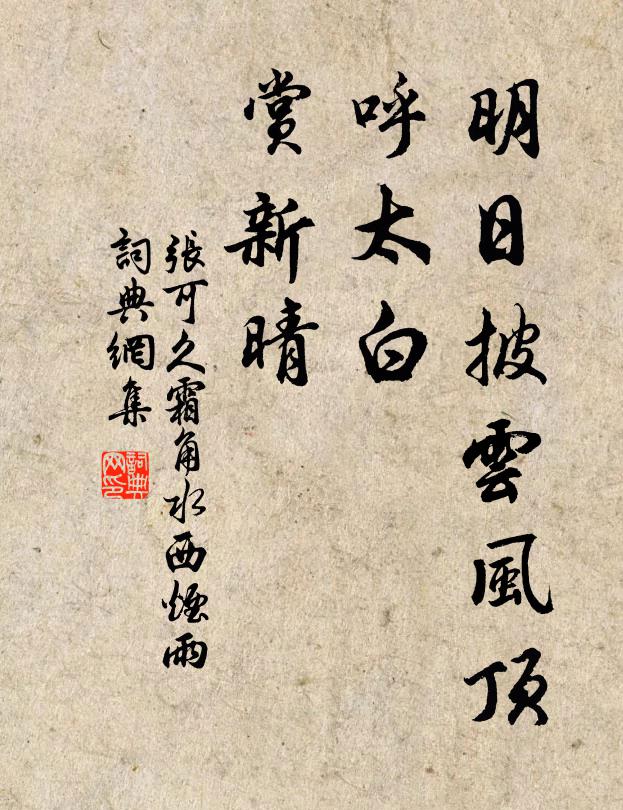 明日披雲風顶
呼太白
賞新晴
張可久霜角水西煙雨
詞典網集
詞典网印